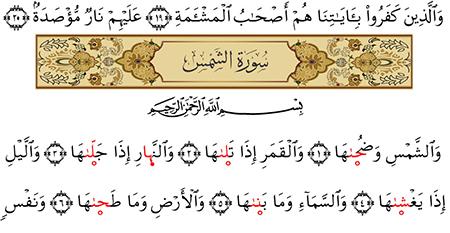 وَالَّذِينَ كَفَرُوا۟ بِـَٔايَـٰتِنَا هُمْ أَصْحَـٰبُ الْمَشْـَٔمَةِ ﴿١٩﴾ عَلَيْهِمْ نَارٌ مُّؤْصَدَةٌ ﴿٢٠﴾
سُورَةُ الشَّمْسِ
بِسْمِ اللَّهِ الرَّحْمَـٰنِ الرَّحِيمِ
وَالشَّمْسِ وَضُحَىٰهَا ﴿١﴾ وَالْقَمَرِ إِذَا تَلَىٰهَا ﴿٢﴾ وَالنَّهَارِ إِذَا جَلَّىٰهَا ﴿٣﴾ وَالَّيْلِ
إِذَا يَغْشَىٰهَا ﴿٤﴾ وَالسَّمَآءِ وَمَا بَنَىٰهَا ﴿٥﴾ وَالْأَرْضِ وَمَا طَحَىٰهَا ﴿٦﴾ وَنَفْسٍ